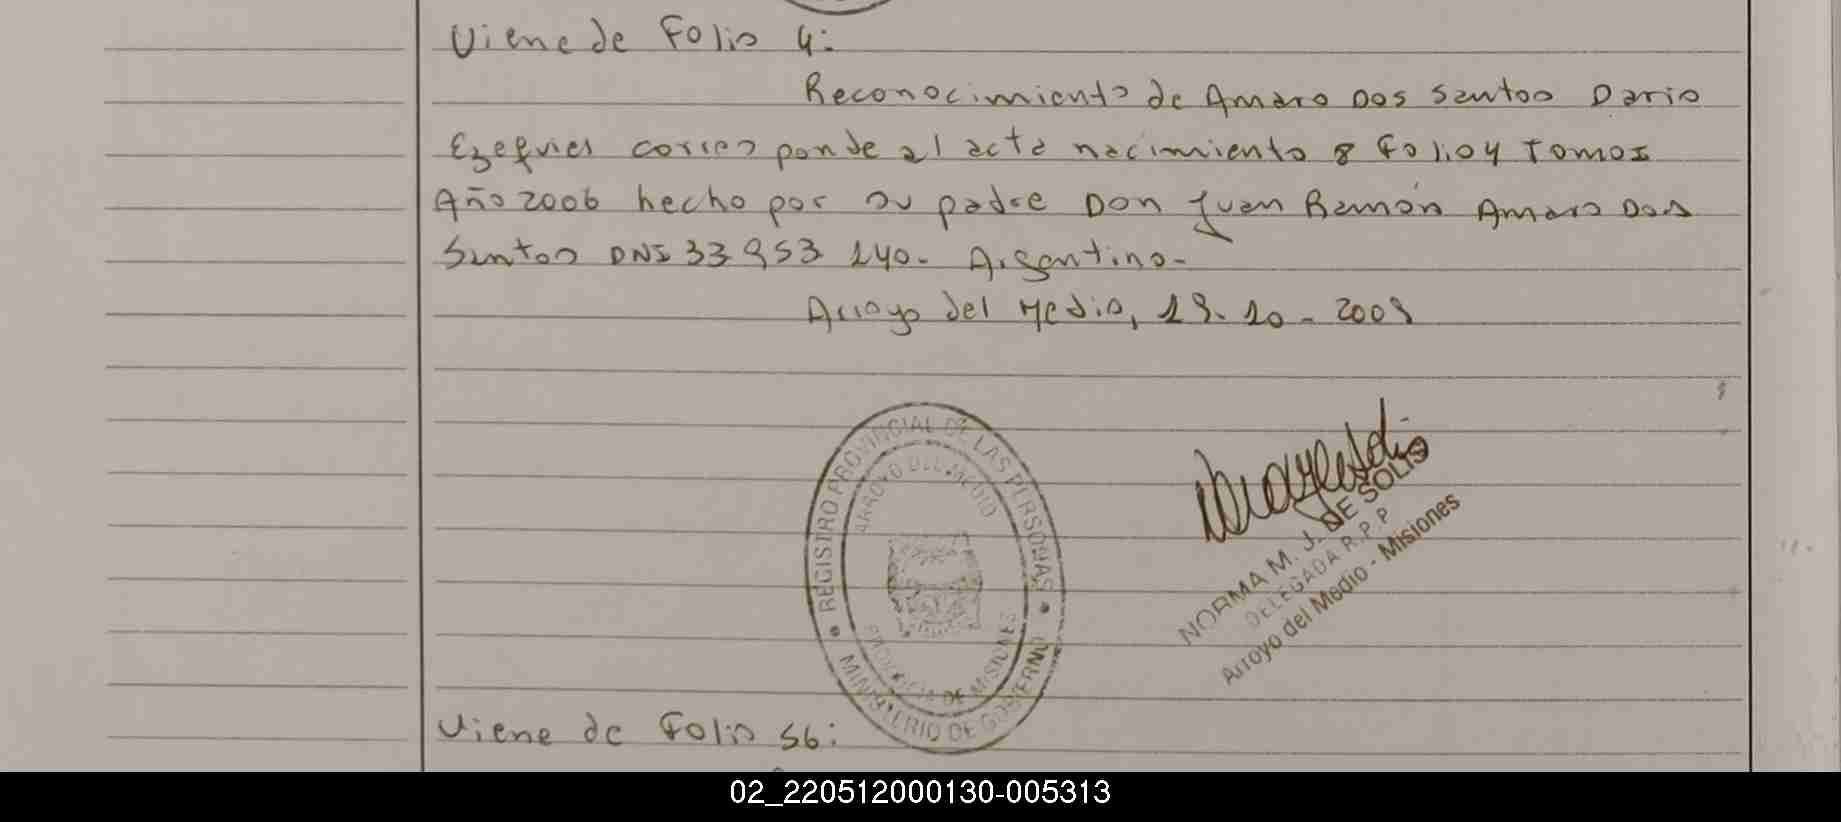 Viene de Folio 4:
Reconocimiento de Amaro Dos Santos Dario
Ezequiel corresponde al acta nacimiento 8 Folio 4 Tomo I
Año 2006 hecho por su padre Don Juan Ramón Amaro Dos
Santos DNI 33 953 140. Argentino-
Arroyo del Medio, 19-10-2009
REGISTRO PROVINCIAL DE LAS PERSONAS
ARROYO DEL MEDIO
PROVINCIA DE MISIONES
MINISTERIO DE GOBIERNO
NORMA M. J. DE SOLIS
DELEGADA R.P.P
Arroyo del Medio - Misiones
Viene de Folio 56:
02_220512000130-005313